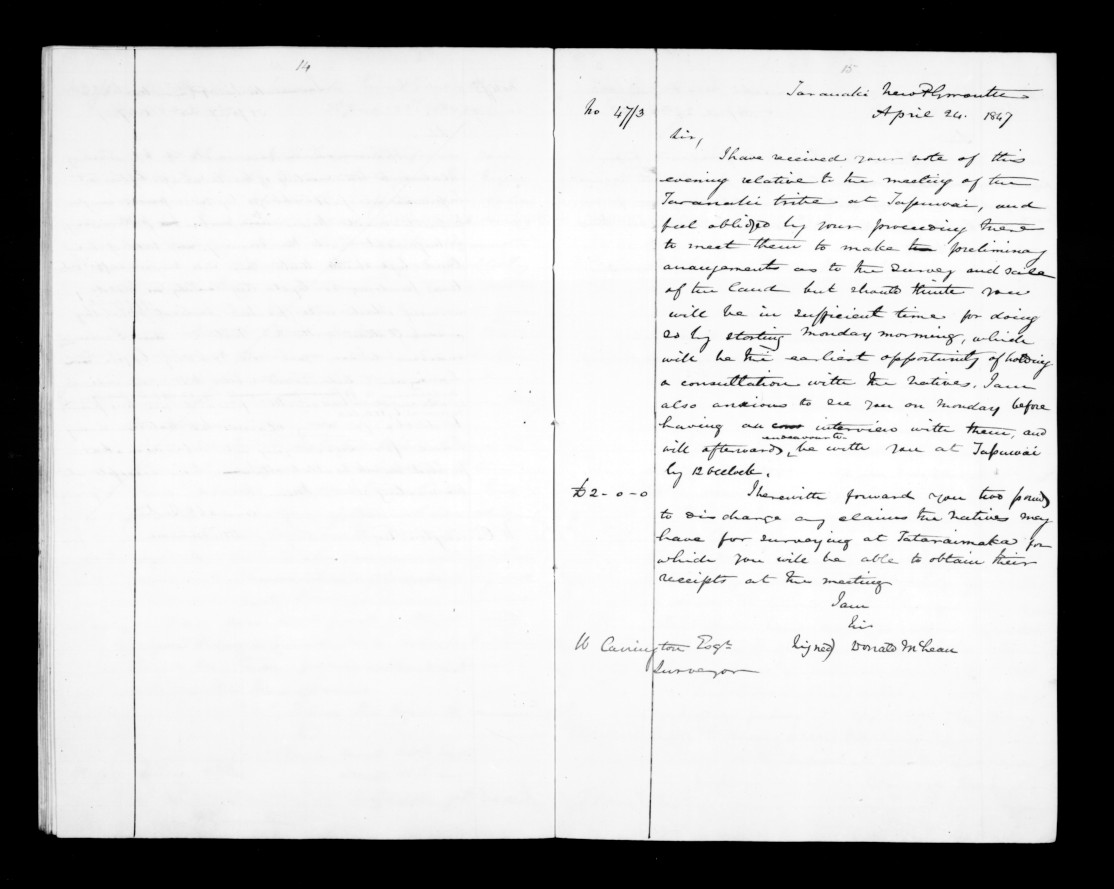 14
15
Taranaki New Plymouth
No 47/3
April 24. 1847
Sir,
I have received your note of this
evening relative to the meeting of the
Taranaki tribe at Tapuwai, and
feel obliged by your proceeding there
to meet them to make the preliminary
arrangements as to the survey and sale
of the land but should think you
will be in sufficient time for doing
so by starting Monday morning, which
will be the earliest opportunity of holding
a consultation with the natives. I am
also anxious to see you on Monday before
having an interview with them, and
will afterwards, endeavour to be with you at Tapuwai
by 12 Oclock.
£2-0-0
I herewith forward you two pounds
to discharge any claims the natives may
have for surveying at Tataraimaka for
which you will be able to obtain their
receipts at the meeting
I am
Sir
W Carrington Esqre
Signed) Donald McLean
Surveyor